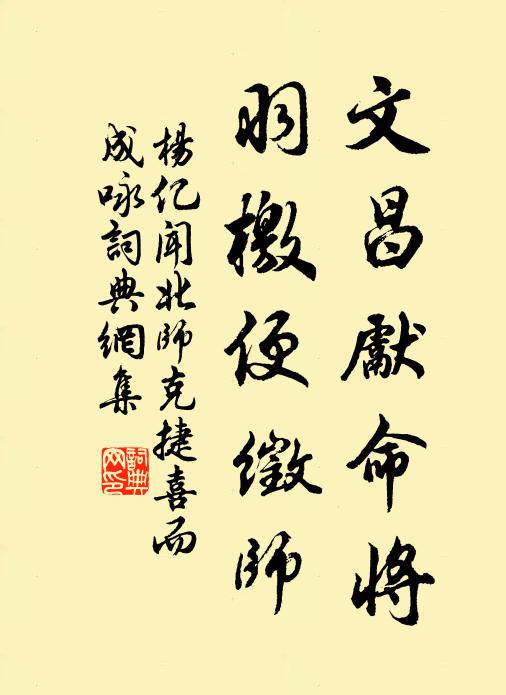 文昌獻命將
羽檄便徵師
楊亿聞北師克捷喜而
成咏詞典網集
詞典网印